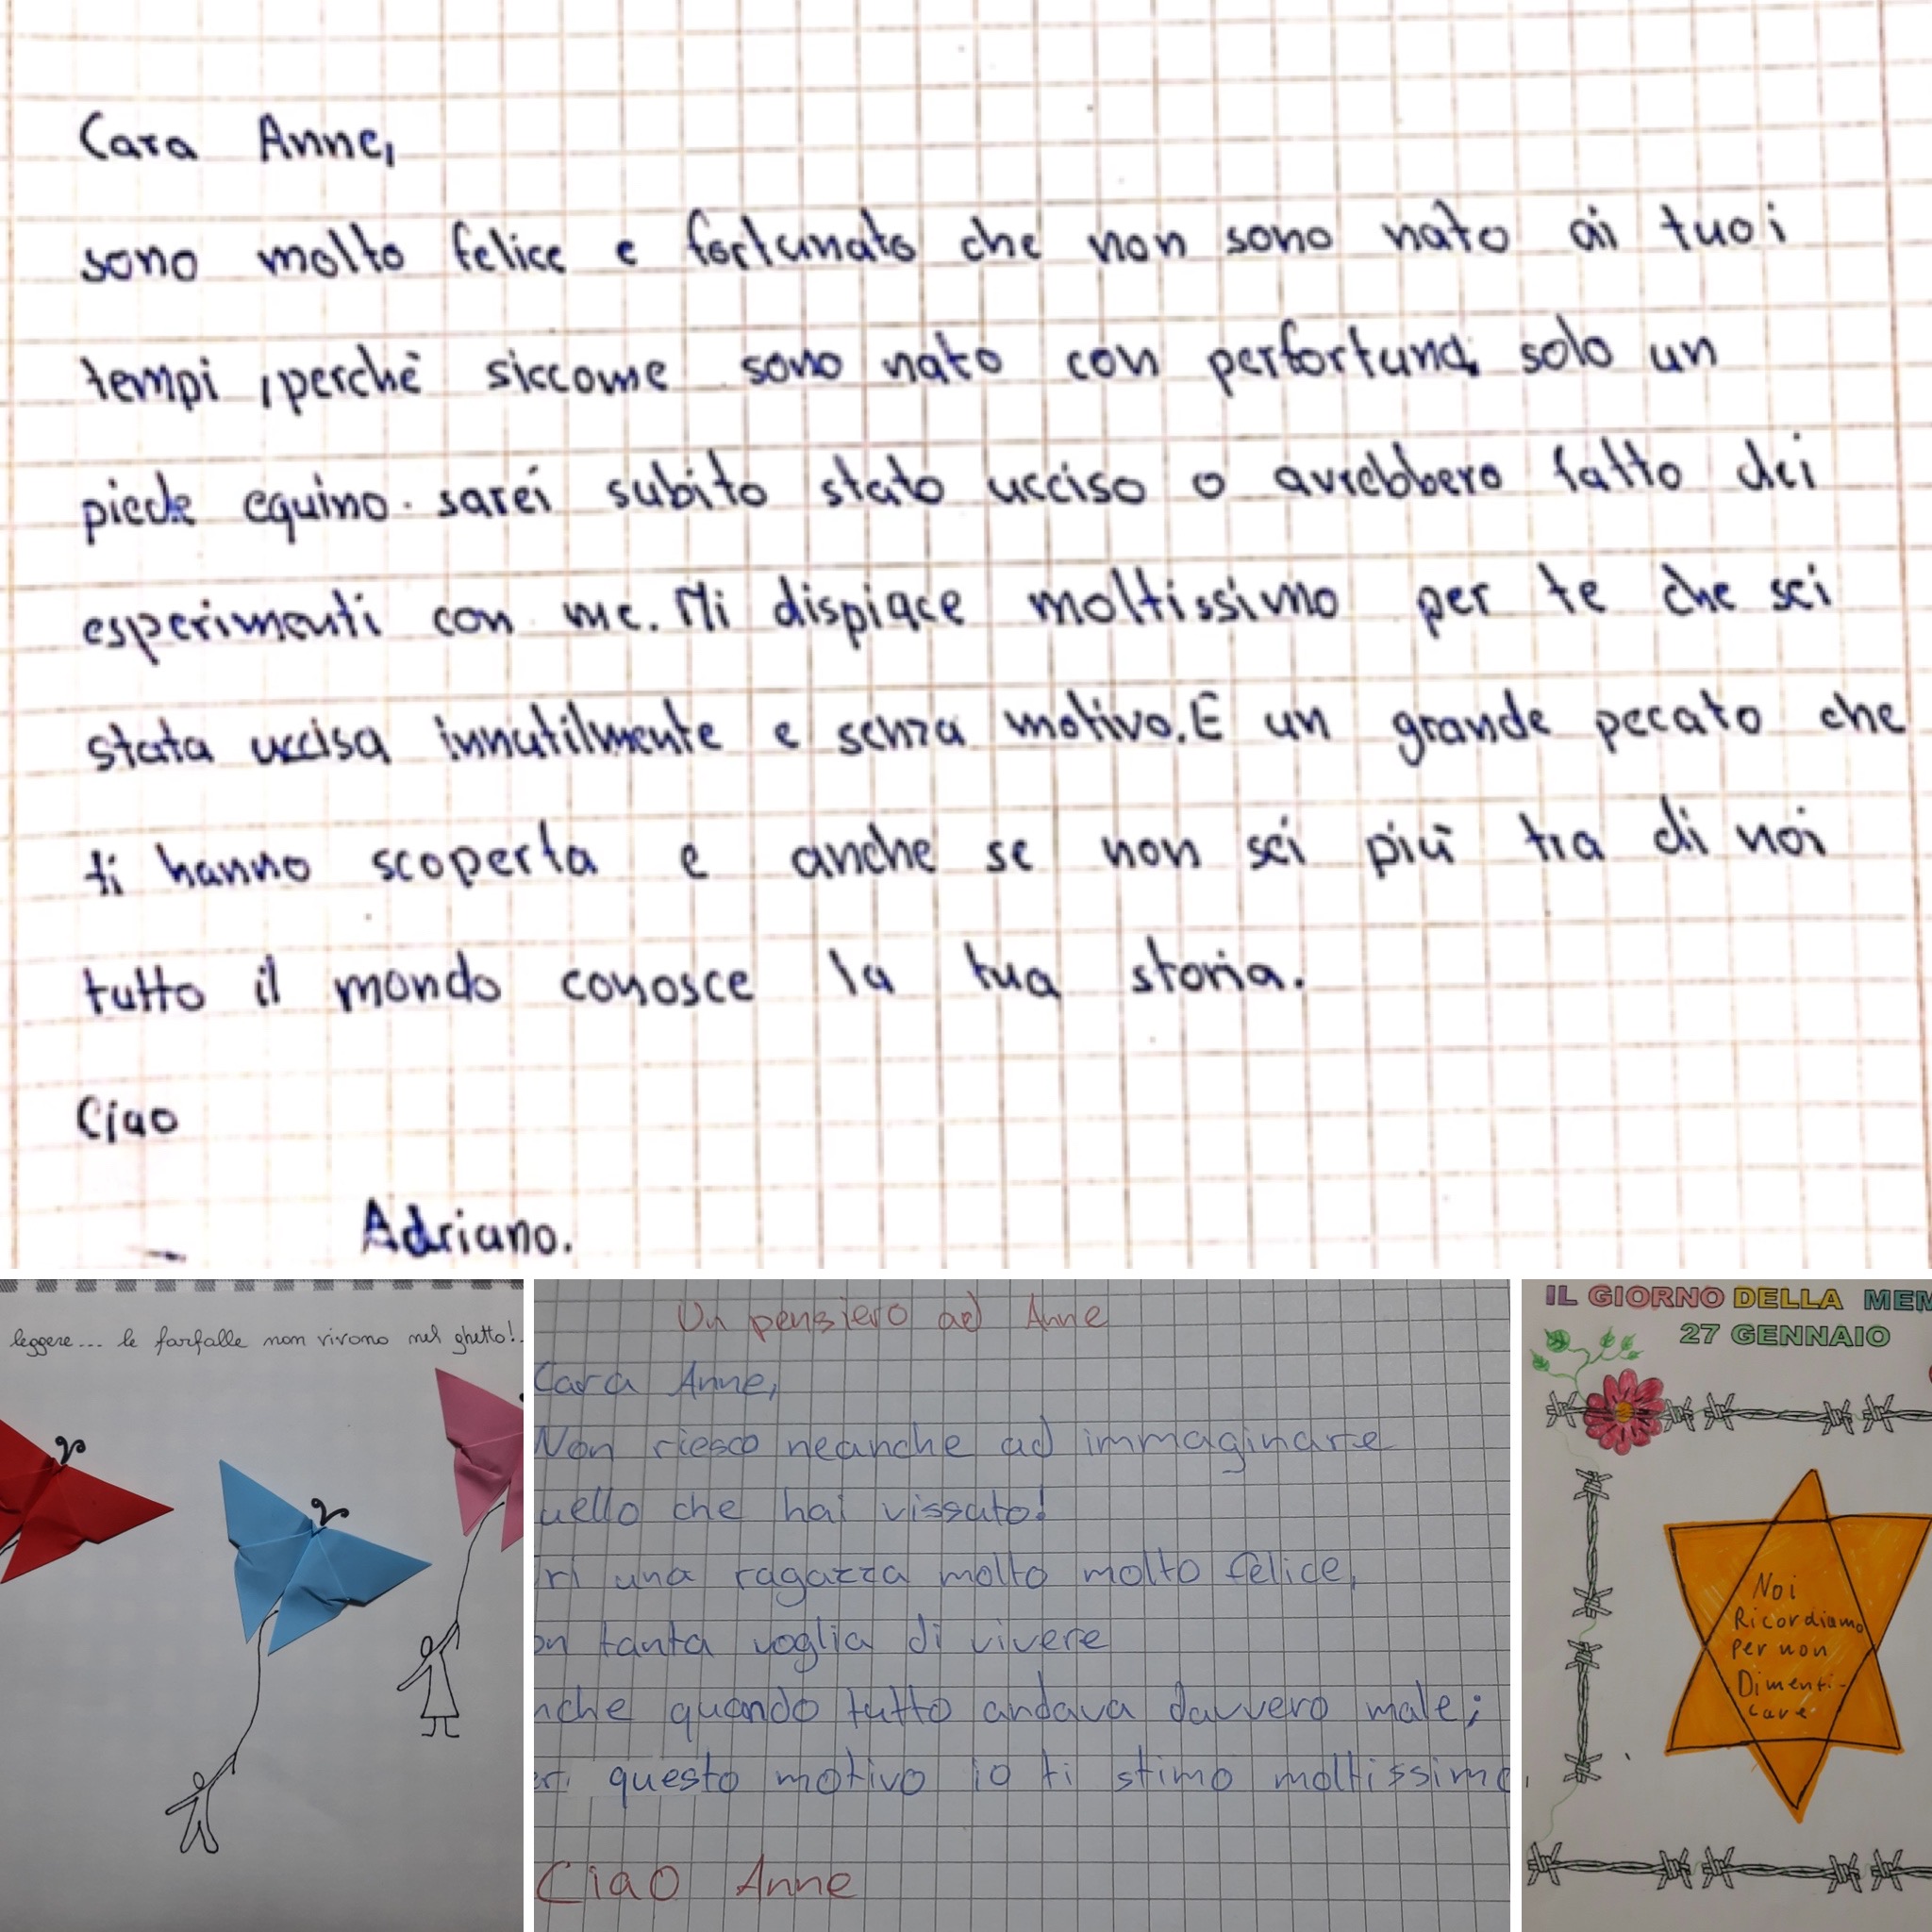 Cara Anne,
sono molto felice e fortunato che non sono nato ai tuoi
tempi, perchè siccome sono nato con perfortuna solo un
piede equino. sarei subito stato ucciso o avrebbero fatto dei
esperimenti con me. Mi dispiace moltissimo per te che sei
stata uccisa innutilmente e senza motivo. E un grande peccato che
ti hanno scoperta e anche se non sei più tra di noi
tutto il mondo conosce la tua storia.
Ciao
Adriano.
leggere... le farfalle non vivono nel ghetto!
Un pensiero ad Anne
Cara Anne,
Non riesco neanche ad immaginare
uello che hai vissuto!
ri una ragazza molto molto felice,
on tanta voglia di vivere
nche quando tutto andava davvero male;
er questo motivo io ti stimo moltissimo
Ciao Anne
IL GIORNO DELLA MEM
27 GENNAIO
Noi
Ricordiamo
per non
Dimenti-
care